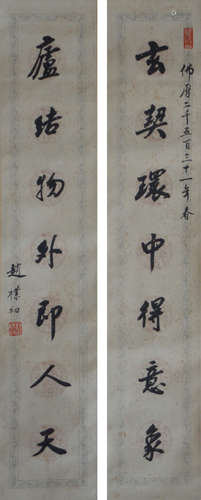 佛曆二千五百三十一年春
玄契環中得意象
廬結物外即人天
趙樸初